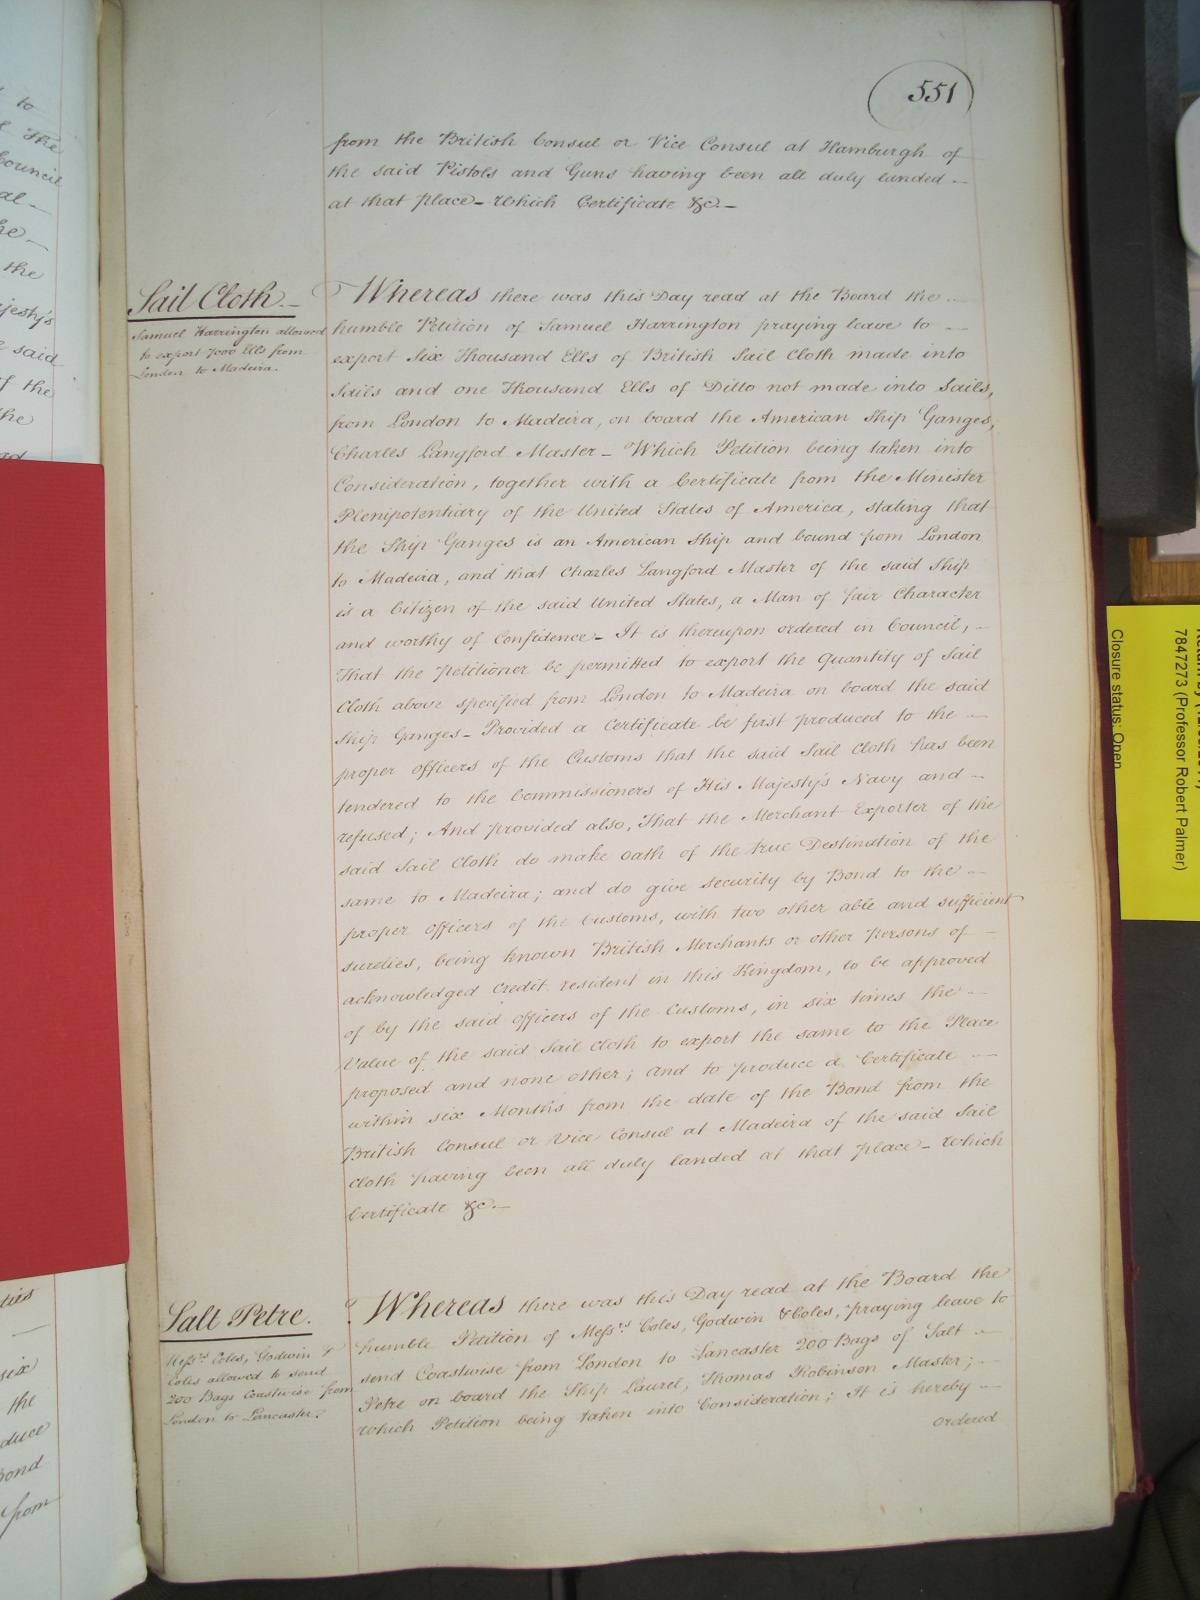 to
the
Council
al-
he-
the
jesty's
e said
f the
the
551
from the British Consul or Vice Consul at Hamburgh of
the said Pistols and Guns having been all duly landed -
at that place - Which Certificate &c. -
Sail Cloth. -
Samuel Harrington allowed
to export 7000 Ells from
London to Madeira.
Whereas there was this Day read at the Board the -
humble Petition of Samuel Harrington praying leave to -
export Six Thousand Ells of British Sail Cloth made into
Sails and one Thousand Ells of Ditto not made into Sails,
from London to Madeira, on board the American Ship Ganges,
Charles Langford Master - Which Petition being taken into
Consideration, together with a Certificate from the Minister
Plenipotentiary of the United States of America, stating that
the Ship Ganges is an American Ship and bound from London
to Madeira, and that Charles Langford Master of the said Ship
is a Citizen of the said United States, a Man of fair Character
and worthy of Confidence - It is thereupon ordered in Council, -
That the Petitioner be permitted to export the Quantity of Sail
Cloth above specified from London to Madeira on board the said
Ship Ganges - Provided a Certificate be first produced to the -
proper officers of the Customs that the said Sail Cloth has been
tendered to the Commissioners of His Majesty's Navy and -
refused; And provided also, That the Merchant Exporter of the
said Sail Cloth do make oath of the true Destination of the
same to Madeira; and do give security by Bond to the -
proper officers of the Customs, with two other able and sufficient
sureties, being known British Merchants or other Persons of -
acknowledged Credit resident in this Kingdom, to be approved
of by the said officers of the Customs, in six times the -
Value of the said Sail Cloth to export the same to the Place
proposed and none other; and to produce a Certificate -
within six Months from the date of the Bond from the
British Consul or Vice Consul at Madeira of the said Sail
Cloth having been all duly landed at that place - Which
Certificate &c. -
Salt Petre.
Messrs. Coles, Godwin &
Coles allowed to send
200 Bags Coastwise from
London to Lancaster.
Whereas there was this Day read at the Board the
humble Petition of Messrs. Coles, Godwin & Coles, praying leave to
send Coastwise from London to Lancaster 200 Bags of Salt -
Petre on board the Ship Laurel, Thomas Robinson Master; -
Which Petition being taken into Consideration; It is hereby -
ordered
six
the
duce
Bond
from
7847273 (Professor Robert Palmer)
Closure status: Open